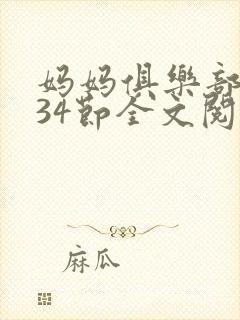 妈妈俱樂部
34節全文閱
麻瓜